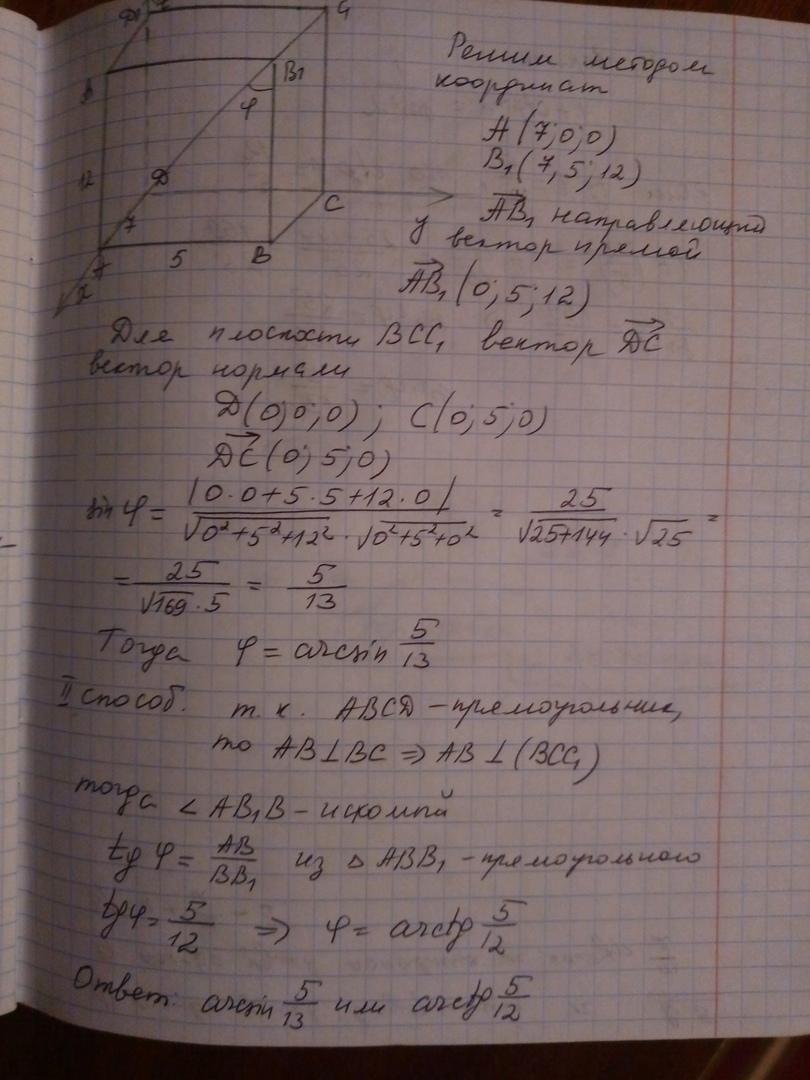 C1
B1
φ
12
D
7
C
y
5
B
x
Решим методом
координат
A (7; 0; 0)
B1 (7, 5; 12)
AB1 направляющий
вектор прямой
AB1 (0; 5; 12)
Для плоскости BCC1 вектор DC
вектор нормали
D(0; 0; 0) ; C(0; 5; 0)
DC (0; 5; 0)
sin φ = |0·0+5·5+12·0| / √0²+5²+12² · √0²+5²+0² = 25 / √25+144 · √25 =
= 25 / √169 · 5 = 5/13
Тогда φ = arcsin 5/13
II способ. т. к. ABCD – прямоугольник,
то AB ⊥ BC ⇒ AB ⊥ (BCC1)
тогда ∠ AB1B – искомый
tg φ = AB/BB1 из △ ABB1 – прямоугольного
tg φ = 5/12 ⇒ φ = arctg 5/12
Ответ: arcsin 5/13 или arctg 5/12